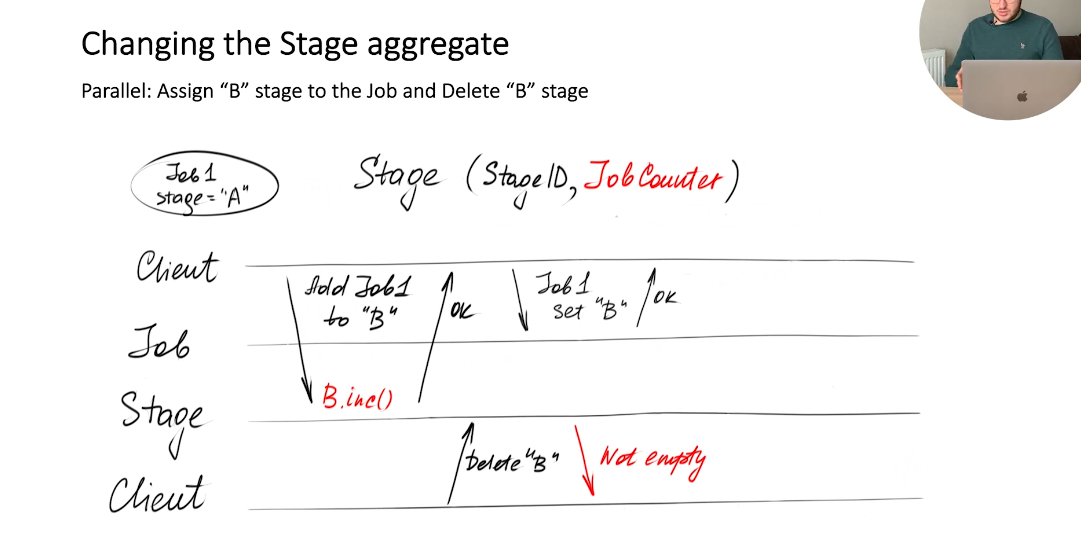 Changing the Stage aggregate
Parallel: Assign “B” stage to the Job and Delete “B” stage
Job 1
stage = "A"
Stage (StageID, JobCounter)
Client
Add Job1
to "B"
OK
Job 1
set "B"
OK
Job
B.inc()
Stage
Delete "B"
Not empty
Client